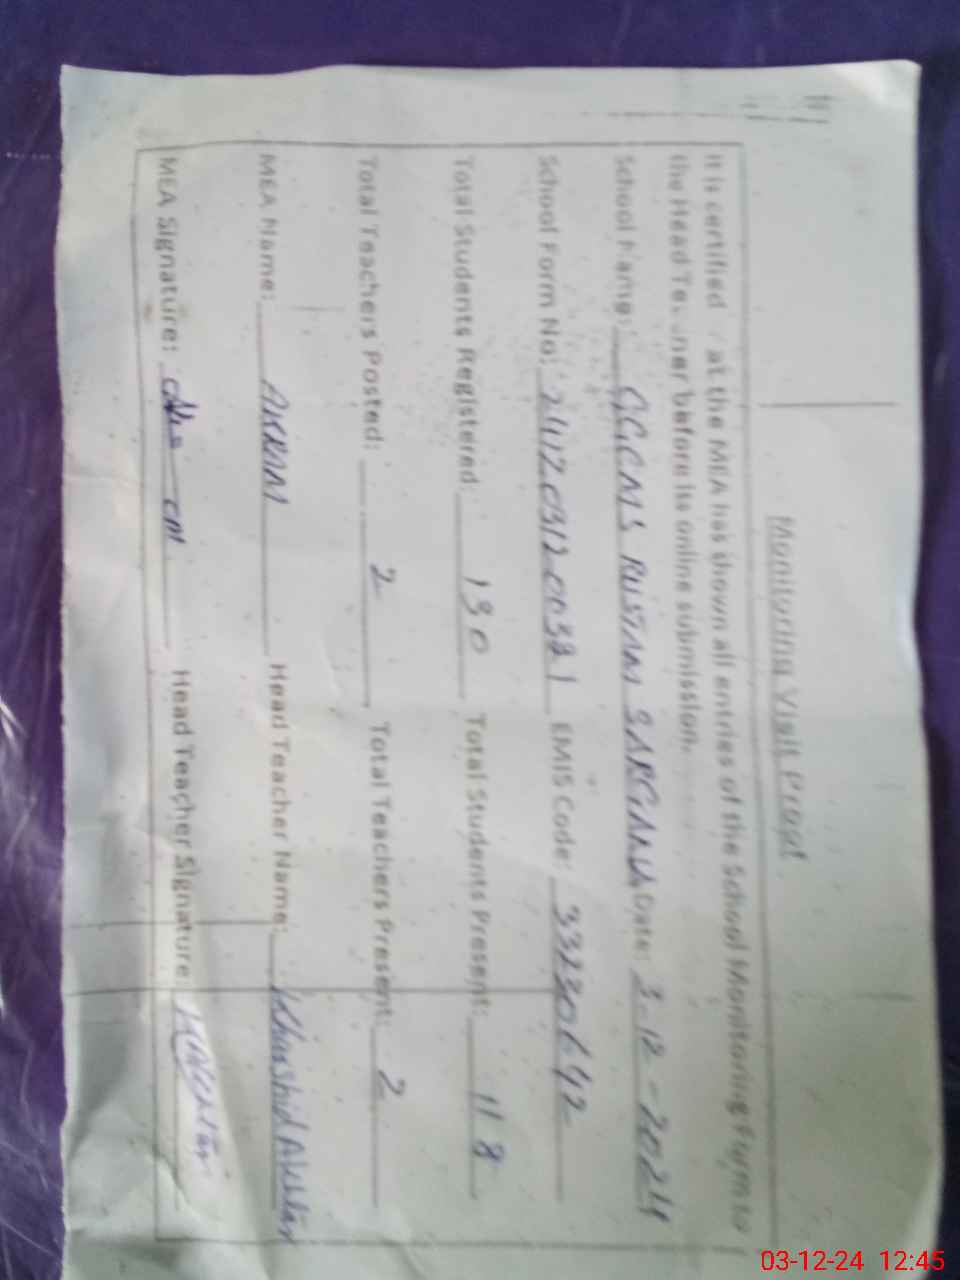 Monitoring Visit Proof
It is certified that the MEA has shown all entries of the School Monitoring Form to
the Head Teacher before its online submission.
School Name: GGCMS RUSTAM SARGANA Date: 3-12-2024
School Form No: 2412031200381 EMIS Code: 33230642
Total Students Registered: 130 Total Students Present: 118
Total Teachers Posted: 2 Total Teachers Present: 2
MEA Name: AKRAM Head Teacher Name: Khurshid Akhtar
MEA Signature: Head Teacher Signature: KAkhtar
03-12-24 12:45